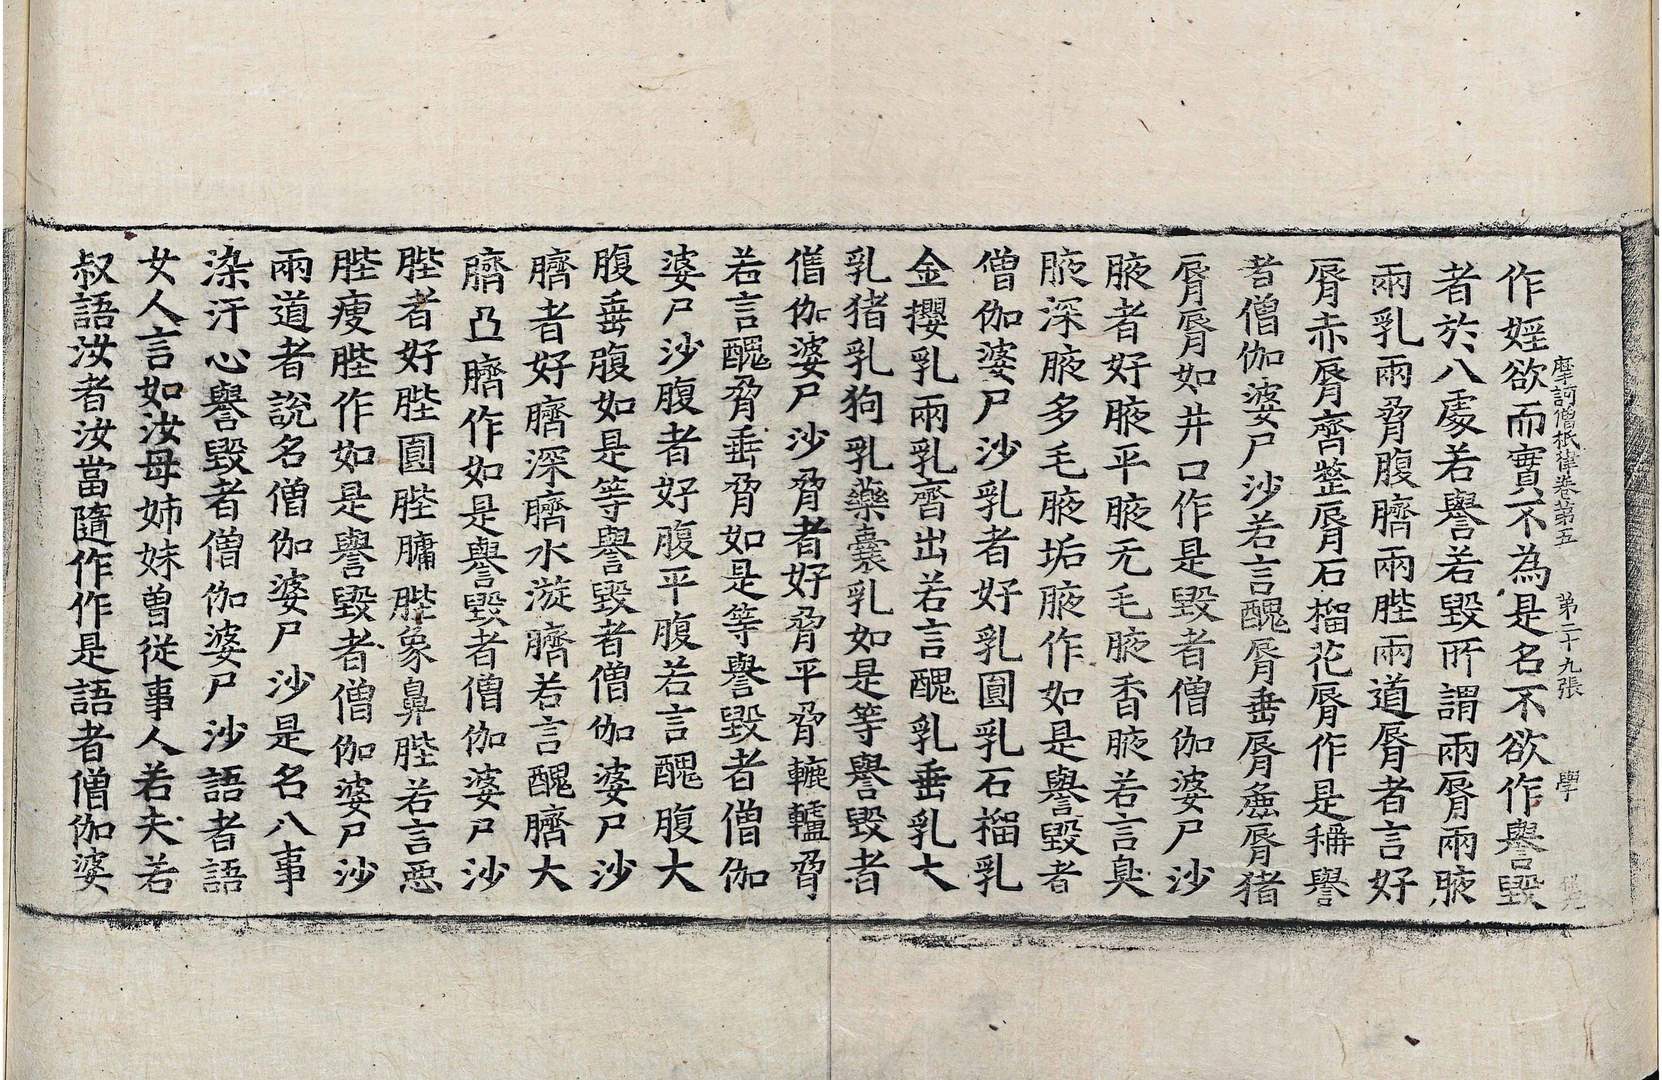 作婬欲而實不為是名不欲作譽毀
摩訶僧祇律卷第五 第二十九張 學
者於八處若譽若毀所謂兩脣兩腋
兩乳兩脅腹臍兩䏶兩道脣者言好
脣赤脣齊整脣石榴花脣作是稱譽
者僧伽婆尸沙若言醜脣垂脣麁脣猪
脣脣如井口作是毀者僧伽婆尸沙
腋者好腋平腋无毛腋香腋若言臭
腋深腋多毛腋垢腋作如是譽毀者
僧伽婆尸沙乳者好乳圓乳石榴乳
金甖乳兩乳齊出若言醜乳垂乳大
乳猪乳狗乳藥囊乳如是等譽毀者
僧伽婆尸沙脅者好脅平脅轆轤脅
若言醜脅垂脅如是等譽毀者僧伽
婆尸沙腹者好腹平腹若言醜腹大
腹垂腹如是等譽毀者僧伽婆尸沙
臍者好臍深臍水漩臍若言醜臍大
臍凸臍作如是譽毀者僧伽婆尸沙
䏶者好䏶圓䏶𦟛䏶象鼻䏶若言惡
䏶瘦䏶作如是譽毀者僧伽婆尸沙
兩道者說名僧伽婆尸沙是名八事
染汙心譽毀者僧伽婆尸沙語者語
女人言如汝母姊妹曾從事人若夫若
叔語汝者汝當隨作作是語者僧伽婆